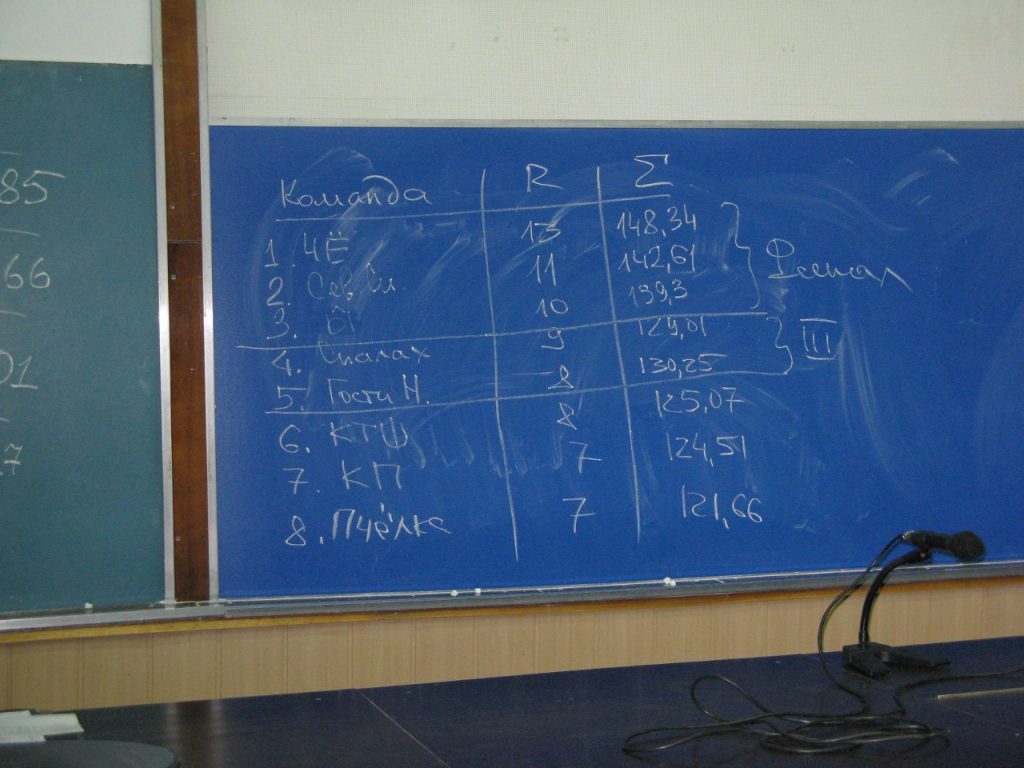 85
66
01
7
Команда R Σ
1. ЧЁ 13 148,34
2. Сев. Си. 11 142,61
3. Ы 10 139,3
Финал
4. Спалах 9 129,01
5. Гости Н. 8 130,25
III
6. КТШ 8 125,07
7. КП 7 124,51
8. Пчёлка 7 121,66